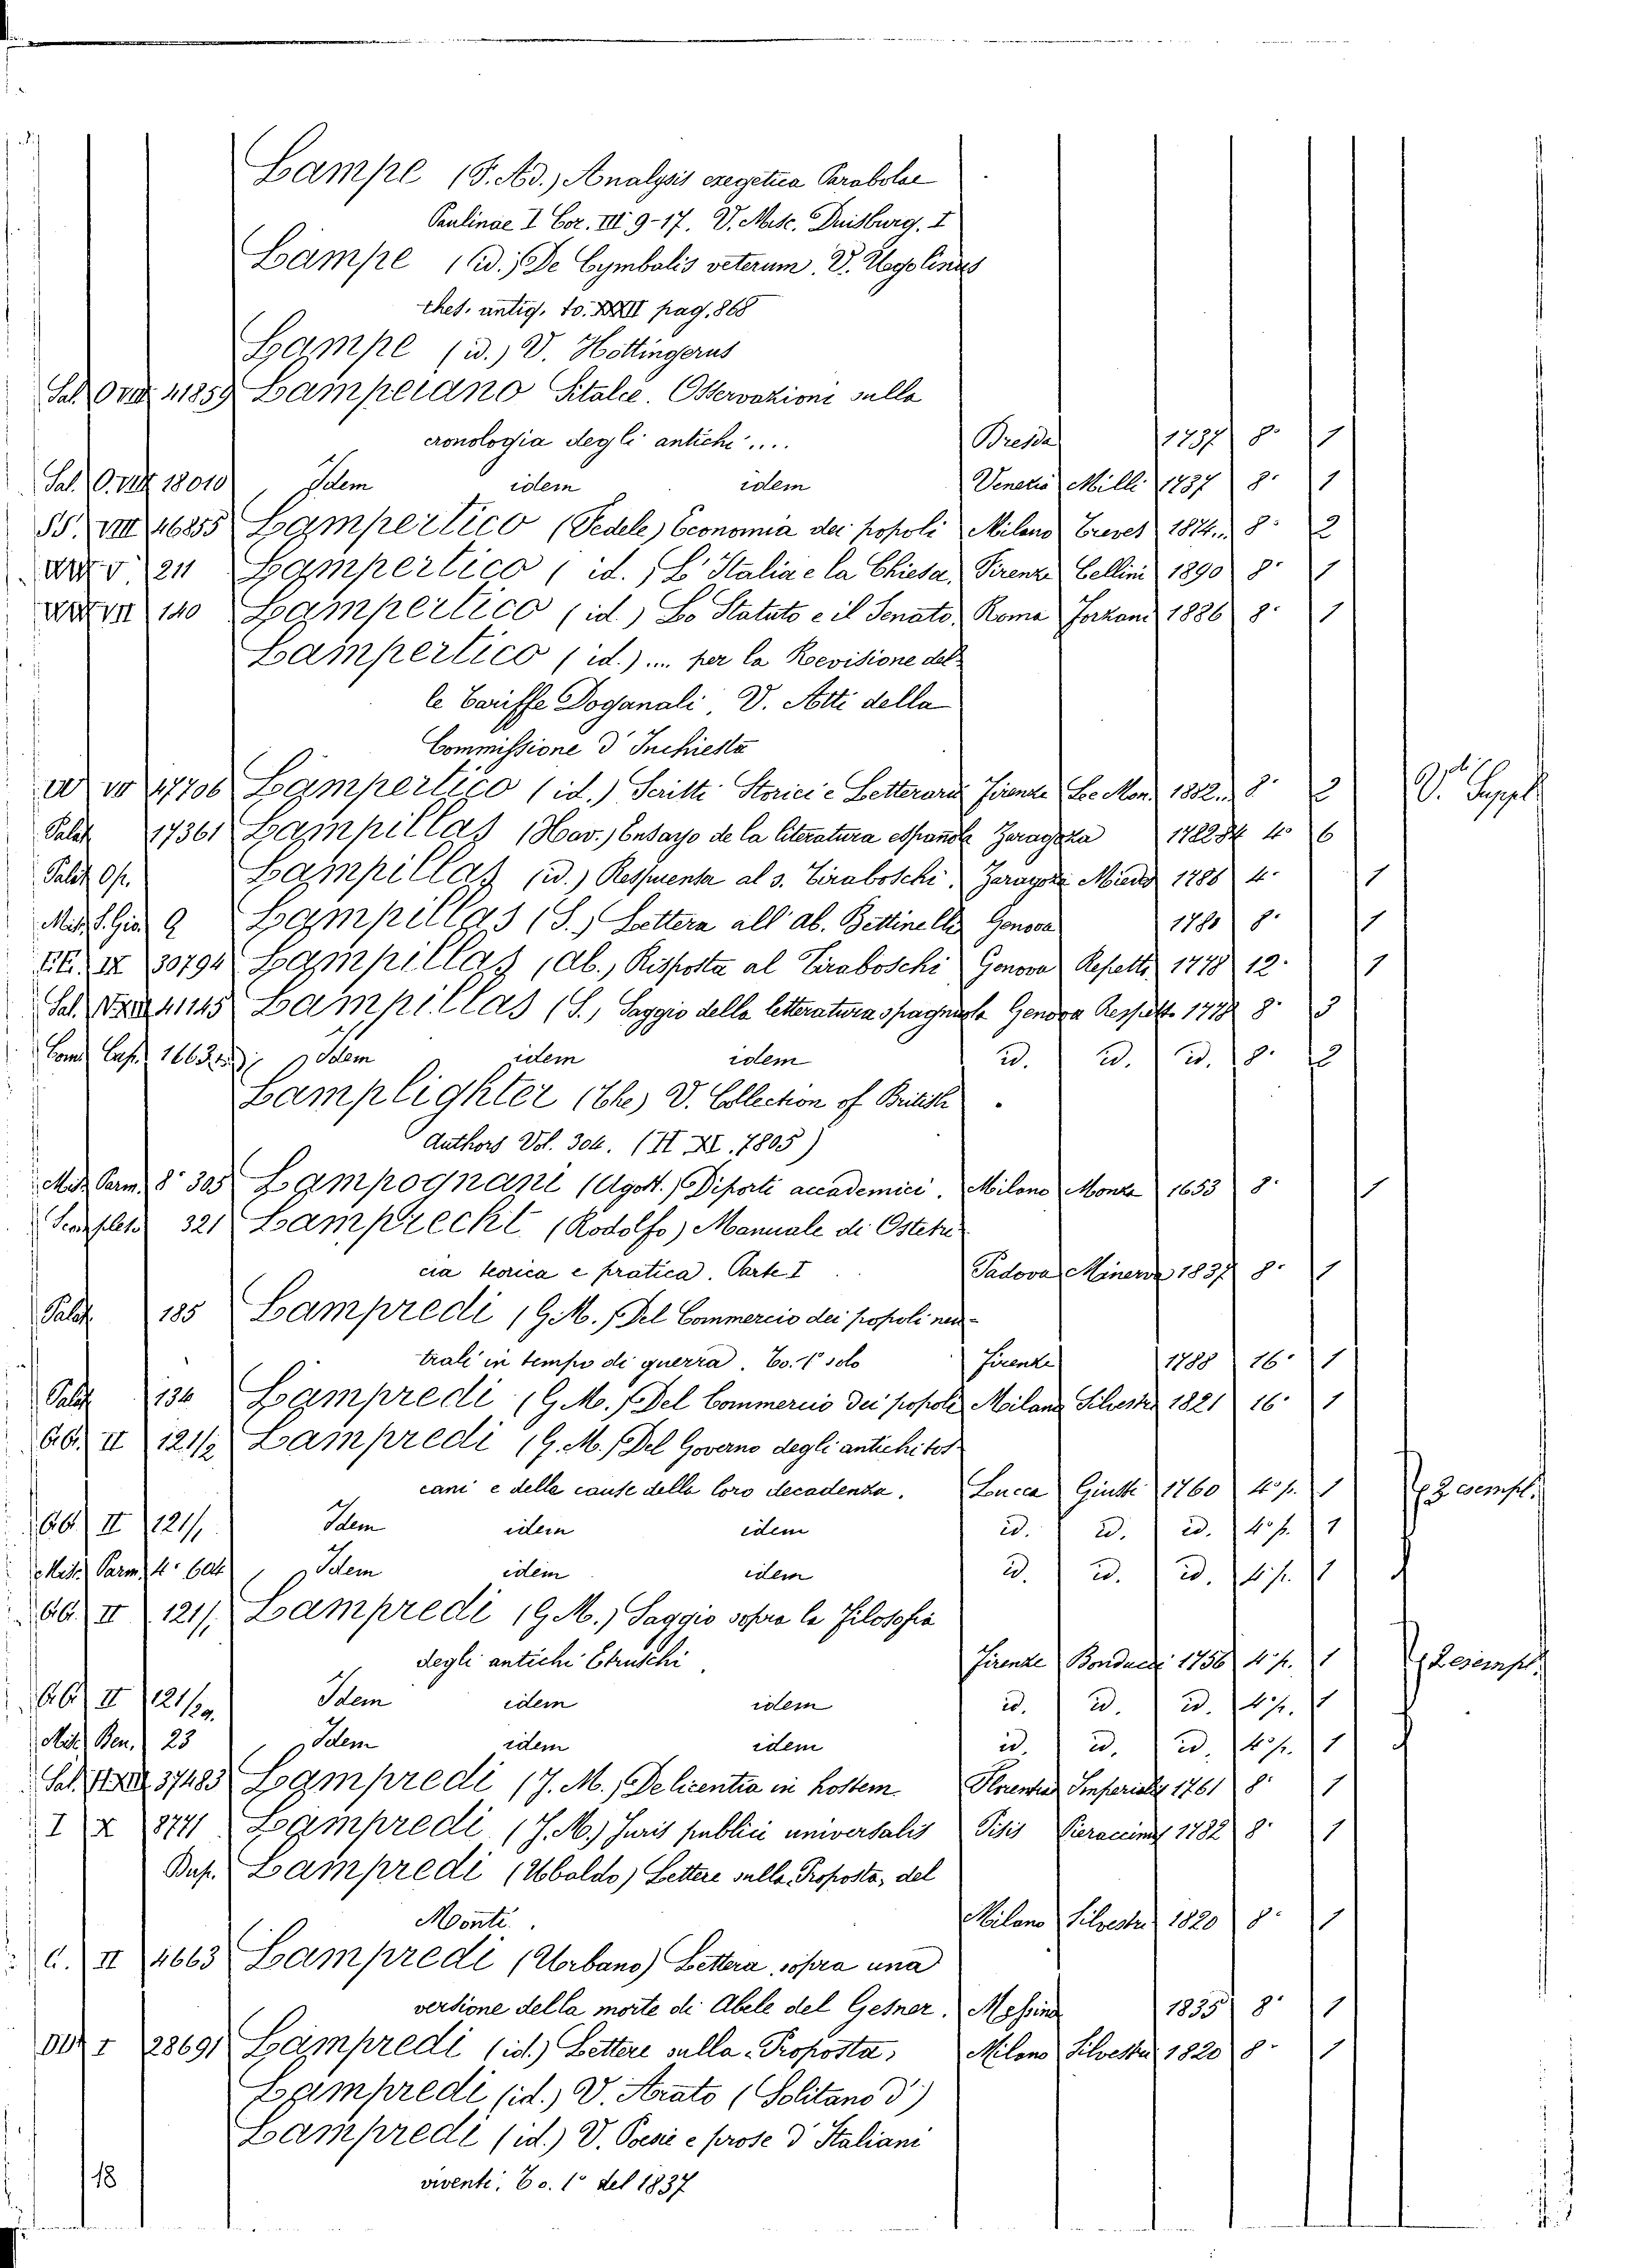 Lampe (F. Ad.) Analysis exegetica Parabolae
Paulinae I Cor. III 9-17. V. Misc. Duisburg. I
Lampe (id.) De Cymbalis veterum. V. Ugolinus
thes. antiq. to. XXXII pag. 868
Lampe (id.) V. Hottingerus
Sal. O VIII 41859 Lampeiano Sitalce. Osservazioni sulla
cronologia degli antichi.... Brescia 1737 8° 1
Sal. O. VIII 18010 Idem idem idem Venezia Milli 1737 8° 1
SS. VIII 46855 Lampertico (Fedele) Economia dei popoli Milano Treves 1874.. 8° 2
V 211 Lampertico (id.) L'Italia e la Chiesa, Firenze Cellini 1890 8° 1
VII 140 Lampertico (id.) Lo Statuto e il Senato, Roma Forzani 1886 8° 1
Lampertico (id.).... per la Revisione del-
le Tariffe Doganali, V. Atti della
Commissione d'Inchiesta
VII 47706 Lampertico (id.) Scritti Storici e Letterarii Firenze Le Mon. 1882.. 8° 2 V. Suppl.
Palat. 17361 Lampillas (Xav.) Ensayo de la literatura espanola Zaragoza 1782.84 4° 6
Palat. Op. Lampillas (id.) Respuesta al s. Tiraboschi, Zaragoza Miedes 1786 4° 1
Misc. S. Gio. 9 Lampillas (S.) Lettera all'ab. Bettinelli Genova 1780 8° 1
EE. IX 30794 Lampillas (Ab.) Risposta al Tiraboschi Genova Repetti 1778 12° 1
Sal. 41145 Lampillas (S.) Saggio della letteratura spagnuola Genova Repetto 1778 8° 3
Com. Cap. 1663 Idem idem idem id. id. id. 8° 2
Lamplighter (The) V. Collection of British
Authors Vol. 304. (H XI. 7805)
Misc. Parm. 8° 305 Lampognani (Agost.) Diporti accademici. Milano Monza 1653 8° 1
321 Lamprecht (Rodolfo) Manuale di Ostetri-
cia teorica e pratica. Parte I Padova Minerva 1837 8° 1
Palat. 185 Lampredi (G.M.) Del Commercio dei popoli neu-
trali in tempo di guerra. To. 1° solo Firenze 1788 16° 1
Palat. 134 Lampredi (G.M.) Del Commercio dei popoli Milano Silvestri 1821 16° 1
BB. II 121/2 Lampredi (G.M.) Del Governo degli antichi tos-
cani e delle cause della loro decadenza. Lucca Giusti 1760 4° p. 1 2 esempl.
BB. II 121/1 Idem idem idem id. id. id. 4° p. 1
Misc. Parm. 4° 604 Idem idem idem id. id. id. 4° p. 1
BB. II 121/1 Lampredi (G.M.) Saggio sopra la Filosofia
degli antichi Etruschi Firenze Bonducci 1756 4° p. 1 2 esempl.
BB. II 121/29. Idem idem idem id. id. id. 4° p. 1
Misc. Ben. 23 Idem idem idem id. id. id. 4° p. 1
Sal. 37483 Lampredi (J.M.) De licentia in hostem Florentiae Imperialis 1761 8° 1
I X 8771 Lampredi (J.M.) Juris publici universalis Pisis Pieraccinus 1782 8° 1
Bap. Lampredi (Ubaldo) Lettere sulla Proposta, del
Monti. Milano Silvestri 1820 8° 1
C. II 4663 Lampredi (Urbano) Lettera sopra una
versione della morte di Abele del Gesner. Messina 1835 8° 1
I 28691 Lampredi (id.) Lettere sulla Proposta, Milano Silvestri 1820 8° 1
Lampredi (id.) V. Arato (Solitano d')
Lampredi (id.) V. Poesie e prose d'Italiani
viventi. To. 1° del 1837
18